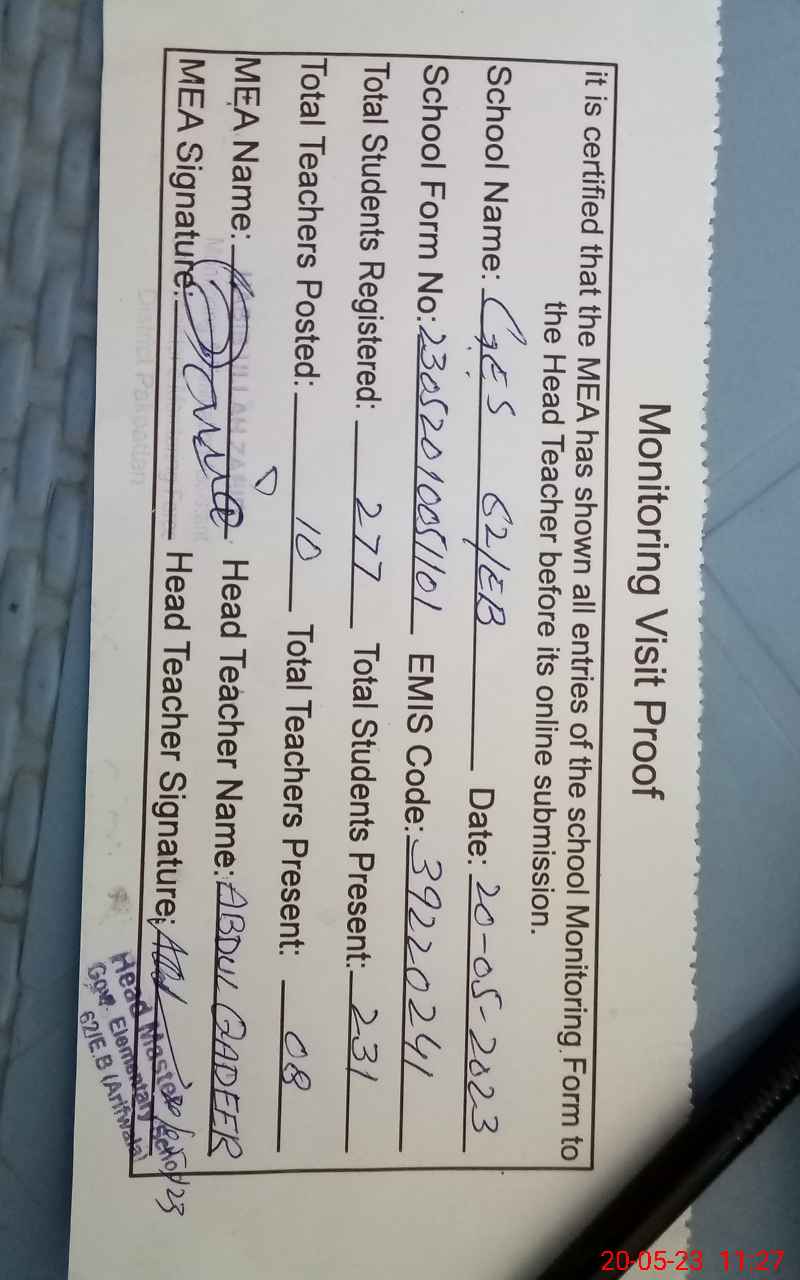 Monitoring Visit Proof
it is certified that the MEA has shown all entries of the school Monitoring Form to
the Head Teacher before its online submission.
School Name: GES 62/EB Date: 20-05-2023
School Form No: 23052010051101 EMIS Code: 39220241
Total Students Registered: 277 Total Students Present: 231
Total Teachers Posted: 10 Total Teachers Present: 08
MEA Name: Head Teacher Name: ABDUL QADEER
MEA Signature: Head Teacher Signature:
District Pakpattan
Head Master
Govt. Elementary
62/E.B (Arifwala)
20-05-23 11:27